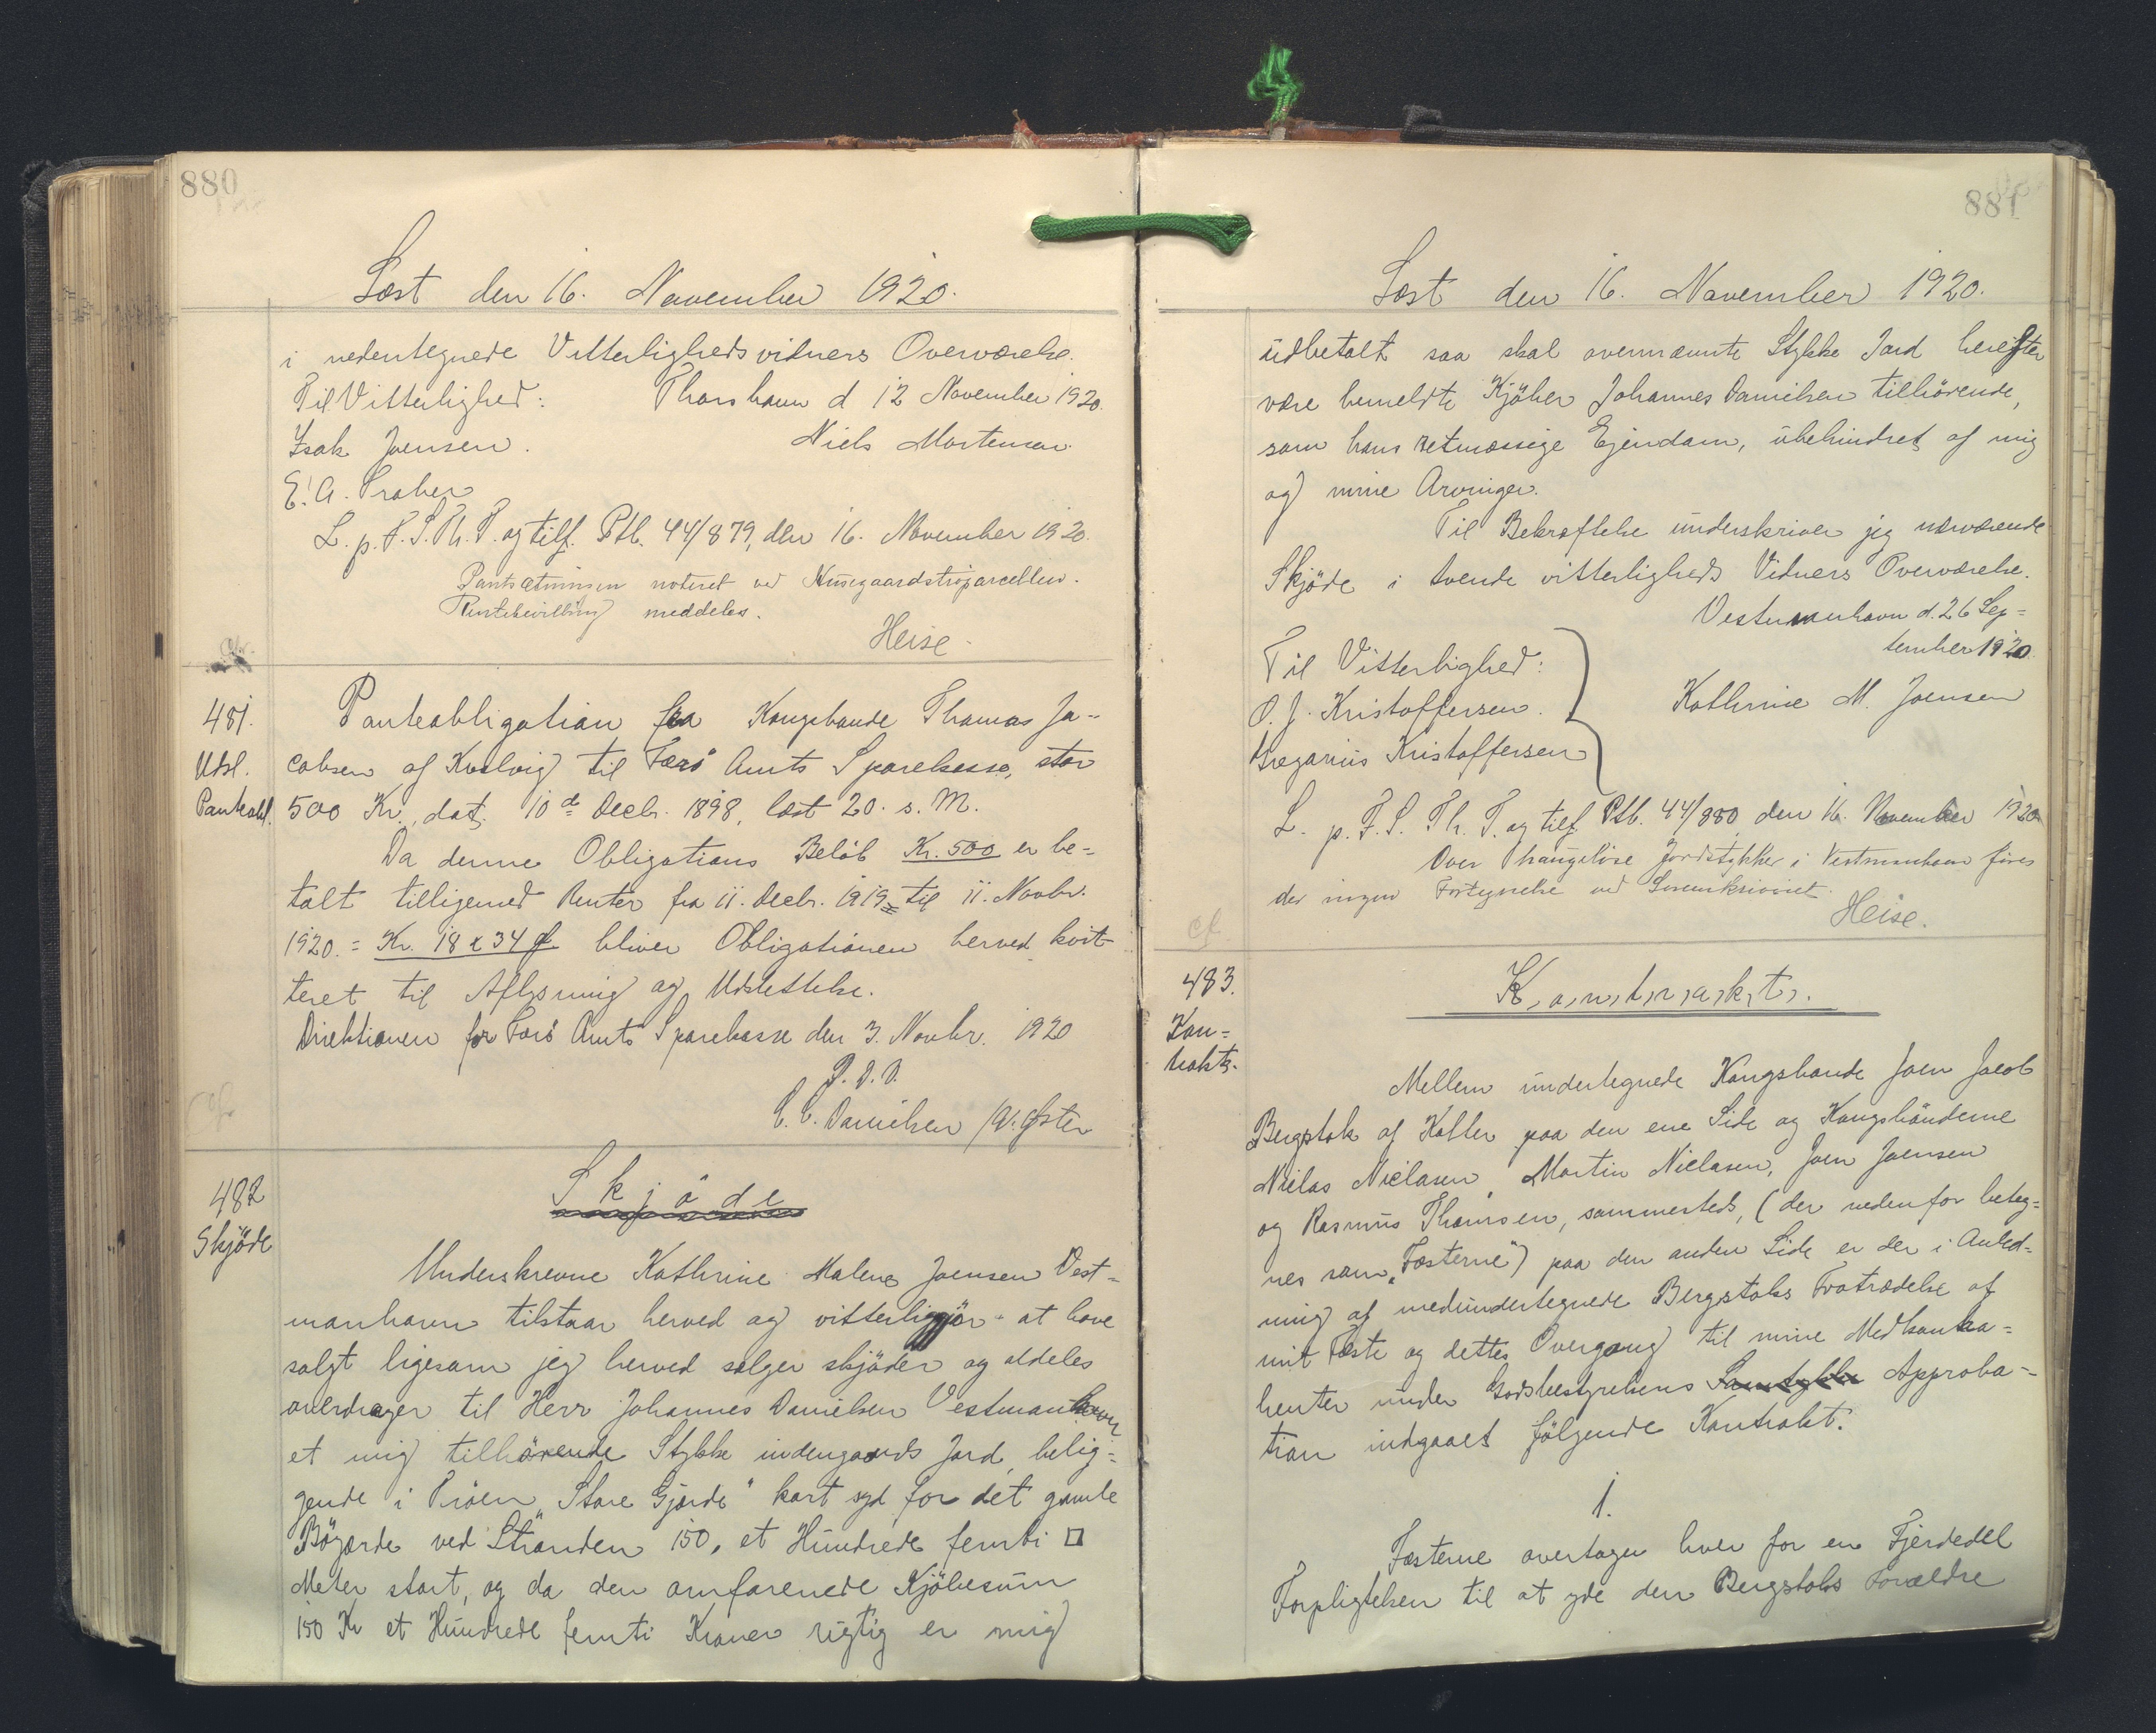 880
Læst den 16. November 1920.
i nedentegnede Vitterlighedsvidners Overværelse.
Til Vitterlighed: Thorshavn d 12 November 1920.
Isak Joensen. Niels Mortensen.
E. A.
L. p. F. S. Th. T. og tilf. Ptb. 44/879, den 16. November 1920.
Pantsætningen noteret ved
Rentebevilling meddeles.
Heise.
481. Panteobligation fra Kongsbonde Thomas Ja-
Udsl. cobsen af Kvalvig til Færø Amts Sparekasse, stor
Panteobl. 500 Kr., dat. 10de Decbr. 1898, læst 20. s. M.
Da denne Obligations Beløb Kr. 500 er be=
talt tilligemed Renter fra 11. Decbr. 1919 til 11. Novbr.
1920. = Kr. 18 x 34 Ø bliver Obligationen herved kvit-
teret til Aflysning og Udslettelse.
Direktionen for Færö Amts Sparekasse den 3. Novbr. 1920
P. D. V.
C. C. Danielsen / A. Øster
cf.
482 Skjöde
Skjöde
Underskrevne Kathrine Malene Joensen Vest=
manhavn tilstaar herved og vitterliggjör at have
solgt ligesom jeg herved sælger skjöder og aldeles
overdrager til Herr Johannes Danielsen Vestmanhavn
et mig tilhörende Stykke indengaards Jord, belig=
gende i Tröen „Store Gjærde" kort syd for det gamle
Bögærde ved Stranden 150, et Hundrede femti □
Meter stort, og da den omforenede Kjöbesum
150 Kr et Hundrede femti Kroner rigtig er mig
881
Læst den 16. November 1920.
udbetalt saa skal ovennævnte Stykke Jord herefter
være bemeldte Kjöber Johannes Danielsen tilhörende,
som hans retmæssige Ejendom, ubehindret af mig
og mine Arvinger.
Til Bekræftelse underskriver jeg nærværende
Skjöde i tvende vitterligheds Vidners Overværelse.
Vestmanhavn d. 26 Sep=
tember 1920.
Til Vitterlighed:
O. J. Kristoffersen. Kathrine M. Joensen
Gregorius Kristoffersen
L. p. F. S. Th. T. og tilf. Ptb. 44/880 den 16. November 1920
Over haugelöse Jordstykker i Vestmanhavn föres
der ingen Fortegnelse ved Sorenskriveriet.
Heise.
cf.
483. Kontrakt.
Kon=
trakt.
Mellem undertegnede Kongsbonde Joen Jacob
Bergstak af Kolter paa den ene Side og Kongsbönderne
Niclas Niclasen, Martin Niclasen, Joen Joensen
og Rasmus Thomsen, sammesteds, (der nedenfor beteg=
nes som „Fæsterne") paa den anden Side er der i Anled=
ning af medundertegnede Bergstaks Fratrædelse af
mit Fæste og dettes Overgang til mine Medkontra=
henter under Godsbestyrelsens Samtykke Approba=
tion indgaaet fölgende Kontrakt:
1.
Fæsterne overtager hver for en Fjerdedel
Forpligtelsen til at yde den Bergstaks Forældre